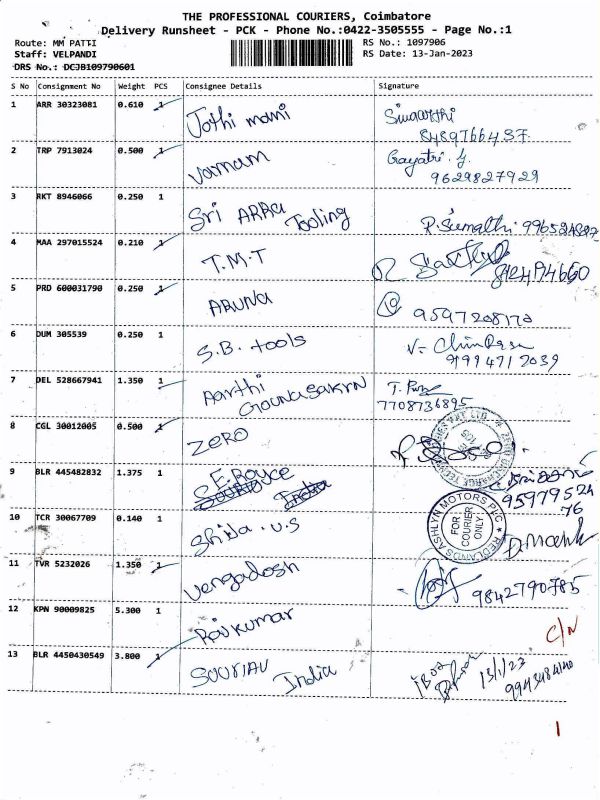 THE PROFESSIONAL COURIERS, Coimbatore
Delivery Runsheet - PCK - Phone No.:0422-3505555 - Page No.:1
Route: MM PATTI
RS No.: 1097906
Staff: VELPANDI
RS Date: 13-Jan-2023
DRS No.: DCJB109790601
S No Consignment No Weight PCS Consignee Details Signature
1 ARR 30323081 0.610 1 Jothi mani
8489766437
2 TRP 7913024 0.500 1 Varnam Gayatri. y.
9629827929
3 RKT 8946066 0.250 1 Sri ARRA Tooling P. Sumathi
4 MAA 297015524 0.210 1 T.M.T
5 PRD 600031790 0.250 1 ARUNA 9597208170
6 DUM 305539 0.250 1 S.B. tools
9199471 2039
7 DEL 528667941 1.350 1 Aarthi
7708736895
8 CGL 30012005 0.500 1 ZERO
9 BLR 445482832 1.375 1 E. Royce
India
95979524
76
10 TCR 30067709 0.140 1 Shida . U.S
REDLANDS ASHLYN MOTORS PLC
FOR
COURIER
ONLY
11 TVR 5232026 1.350 1 Vengadesh 9842790785
12 KPN 90009825 5.300 1 Raj kumar
C/N
13 BLR 4450430549 3.800 1 SOURIAU India 13/1/23
1